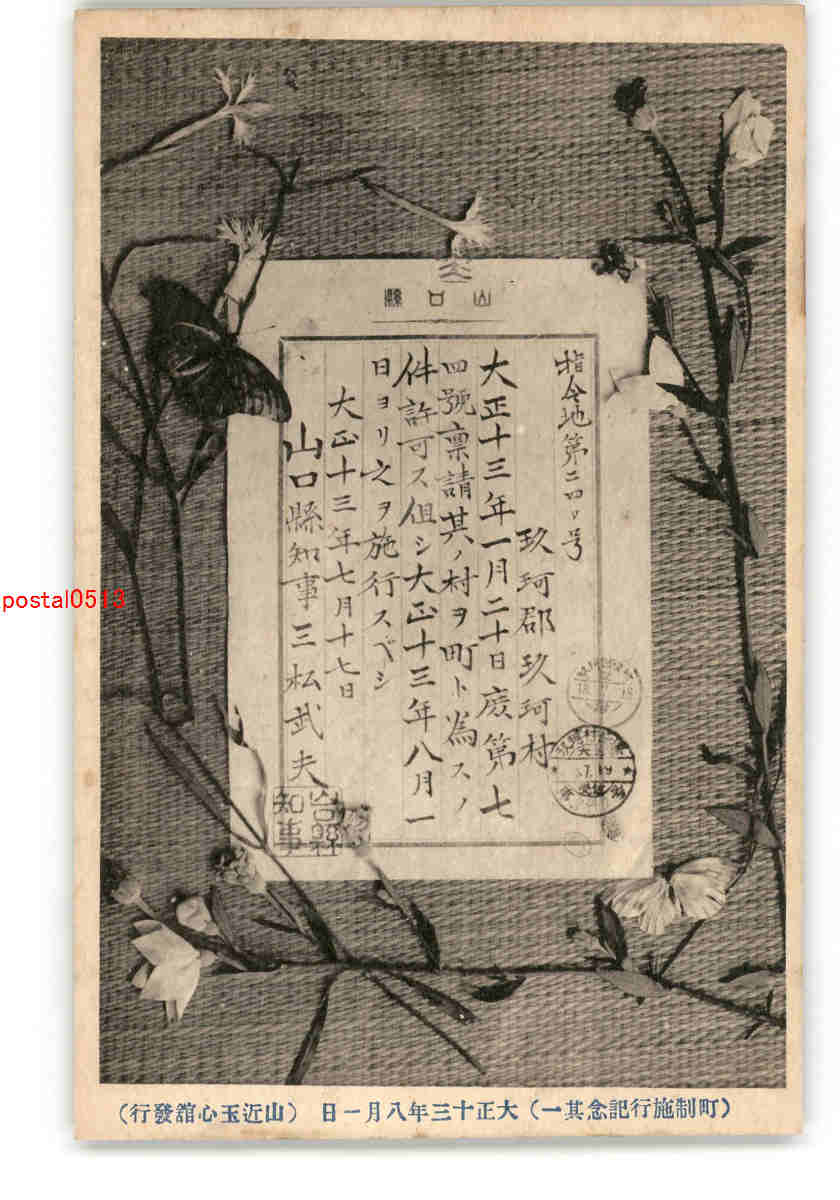 山口縣
指令地第二四〃号
玖珂郡玖珂村
大正十三年一月二十日庶第七
四號稟請其ノ村ヲ町ト為スノ
件許可ス但シ大正十三年八月一
日ヨリ之ヲ施行スベシ
大正十三年七月十七日
山口縣知事三松武夫
postal0513
(町制施行記念其一) 大正十三年八月一日 (山近玉心舘發行)